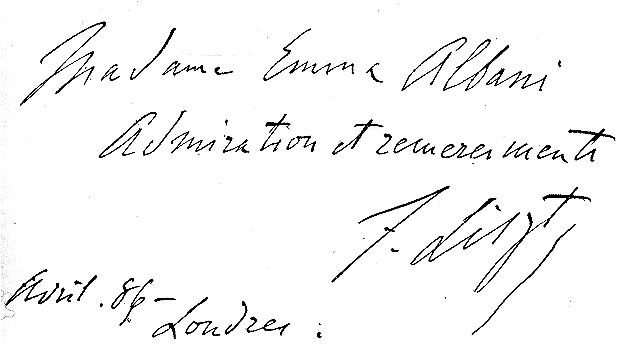 Madame Emma Albani
Admiration et remerciements
F. Liszt
Avril. 86 –
Londres.